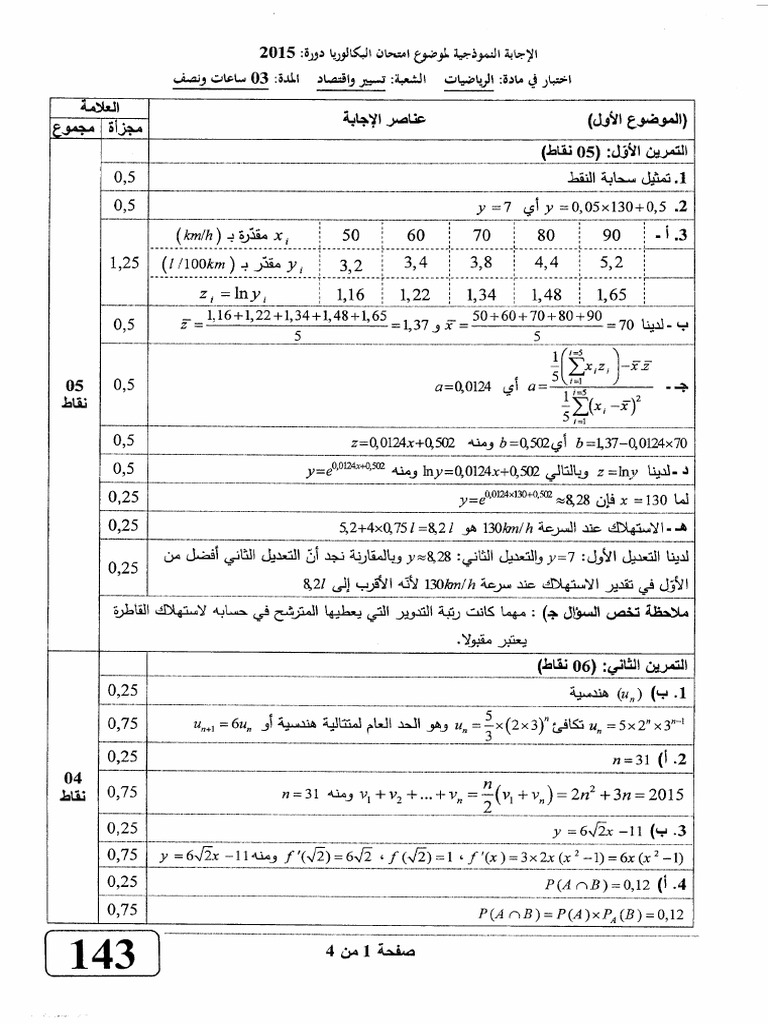 الإجابة النموذجية لموضوع امتحان البكالوريا دورة: 2015
اختبار في مادة: الرياضيات الشعبة: تسيير واقتصاد المدة: 03 ساعات ونصف
العلامة
(الموضوع الأول) عناصر الإجابة مجزأة مجموع
التمرين الأوّل: (05 نقاط)
1. تمثيل سحابة النقط 0,5
2. y = 0,05×130+0,5 أي y = 7 0,5
3. أ- 90 80 70 60 50 x_i مقدّرة بـ (km/h)
5,2 4,4 3,8 3,4 3,2 y_i مقدّر بـ (l/100km) 1,25
1,65 1,48 1,34 1,22 1,16 z_i = ln y_i
ب- لدينا x̄ = (50+60+70+80+90)/5 = 70 و z̄ = (1,16+1,22+1,34+1,48+1,65)/5 = 1,37 0,5
جـ- a = (1/5(∑_{i=1}^{i=5} x_i z_i) − x̄.z̄) / (1/5 ∑_{i=1}^{i=5} (x_i − x̄)²) أي a=0,0124 0,5
05 نقاط
b=1,37−0,0124×70 أي b=0,502 ومنه z=0,0124x+0,502 0,5
د- لدينا z=lny وبالتالي lny=0,0124x+0,502 ومنه y=e^{0,0124x+0,502} 0,5
لما x = 130 فإن y=e^{0,0124×130+0,502}≈8,28 0,25
هـ- الاستهلاك عند السرعة 130km/h هو 5,2+4×0,75l=8,2l 0,25
لدينا التعديل الأول: y=7 والتعديل الثاني: y≈8,28 وبالمقارنة نجد أنّ التعديل الثاني أفضل من
الأوّل في تقدير الاستهلاك عند سرعة 130km/h لأنّه الأقرب إلى 8,2l 0,25
ملاحظة تخص السؤال جـ) : مهما كانت رتبة التدوير التي يعطيها المترشح في حسابه لاستهلاك القاطرة
يعتبر مقبولا.
التمرين الثاني: (06 نقاط)
1. ب) (u_n) هندسية 0,25
u_n = 5×2^n×3^{n−1} تكافئ u_n = 5/3×(2×3)^n وهو الحد العام لمتتالية هندسية أو u_{n+1} = 6u_n 0,75
2. أ) n = 31 0,25
04 نقاط
v_1 + v_2 + ... + v_n = n/2(v_1 + v_n) = 2n² + 3n = 2015 ومنه n = 31 0,75
3. ب) y = 6√2x −11 0,25
f′(x) = 3×2x(x²−1) = 6x(x²−1) ، f(√2) = 1 ، f′(√2) = 6√2 ومنه y = 6√2x −11 0,75
4. أ) P(A ∩ B) = 0,12 0,25
P(A ∩ B) = P(A) × P_A(B) = 0,12 0,75
صفحة 1 من 4
143